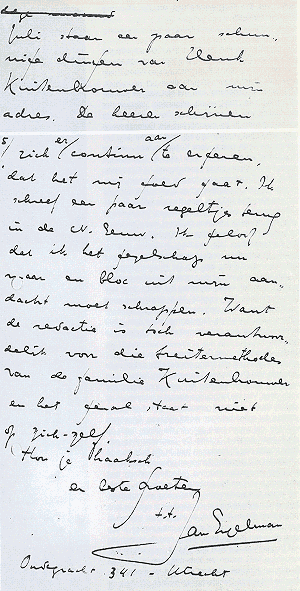 Juli staan een paar schun-
nige dingen van Henk
Kuitenbrouwer aan mijn
adres. De heeren schijnen
zich er continu aan te ergeren,
dat het mij goed gaat. Ik
schreef een paar regeltjes terug
in de N. Eeuw. Ik geloof
dat ik het gezelschap nu
maar en bloc uit mijn aan-
dacht moet schrappen. Want
de redactie is toch verantwoor-
delijk voor die treitermethodes
van de familie Kuitenbrouwer
en het geval staat niet
op zich-zelf.
Hou je haaksch
en beste Groeten
t.t.
Jan Engelman
Oudegracht 341 - Utrecht